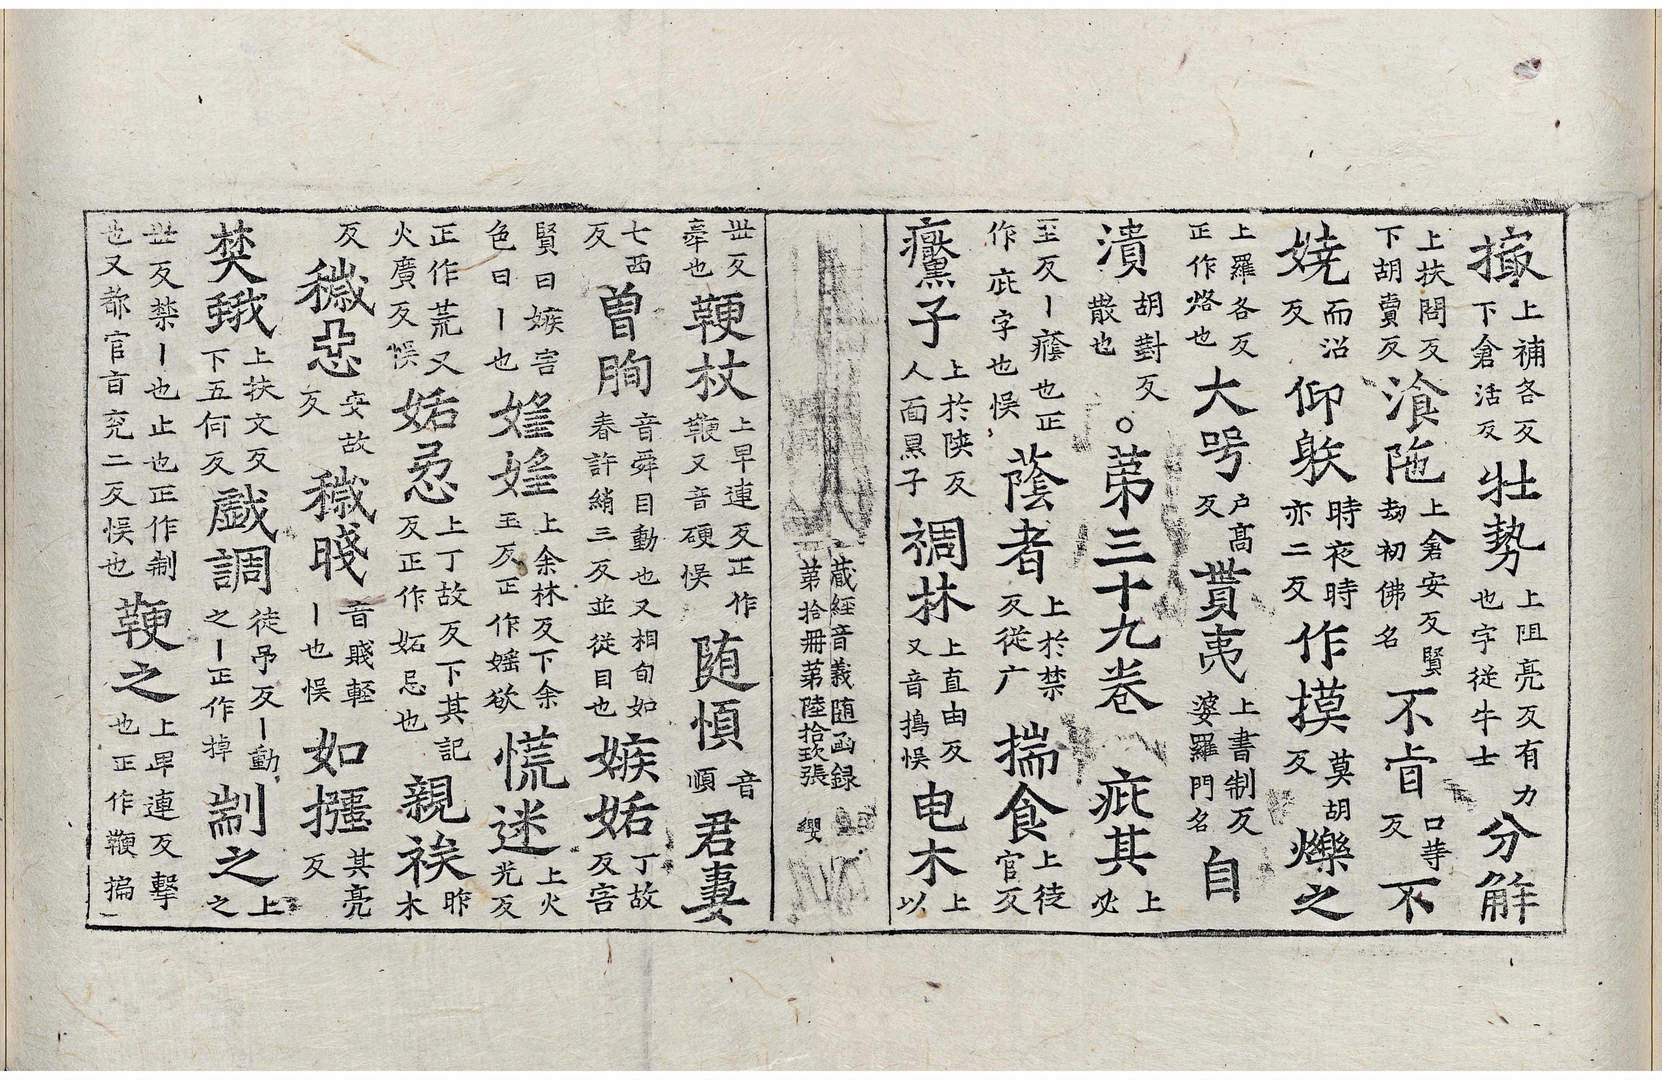 撮上補各反下倉活反牡勢上阻亮反有力也字従牛士分解
上扶問反下胡賣反飡陁上倉安反賢劫初佛名不肯口等反不
嬈而沼反仰躲時夜時亦二反作摸莫胡反爍之
上羅各反正作烙也大呺户髙反貰夷上書制反婆羅門名自
潰胡對反散也○第三十九卷疵其上必
至反丨癊也正作庇字也悮蔭者上於禁反従广揣食上徒官反
黶子上於陝反人面黒子禂林上直由反又音搗悮电木上以
藏經音義随函録第拾冊第陸拾玖張 纓
世反牽也鞕杖上早連反正作鞭又音硬悮随愩音順君妻
七西反曽朐音舜目動也又相旬如春許綃三反並従目也嫉姤丁故反害
賢曰嫉害色曰丨也婬婬上余林反下余玉反正作婬欲慌迷上火光反
正作荒又火廣反悮姤忌上丁故反下其記反正作妬忌也親祑昨木
反穢惡安故反穢賤音賤輕丨也悮如摾其亮反
焚蛾上扶文反下五何反戯調徒吊反丨動之丨正作掉制之上之
世反禁丨也止也正作制也又都官亩兖二反悮也鞕之上卑連反擊也正作鞭揙二